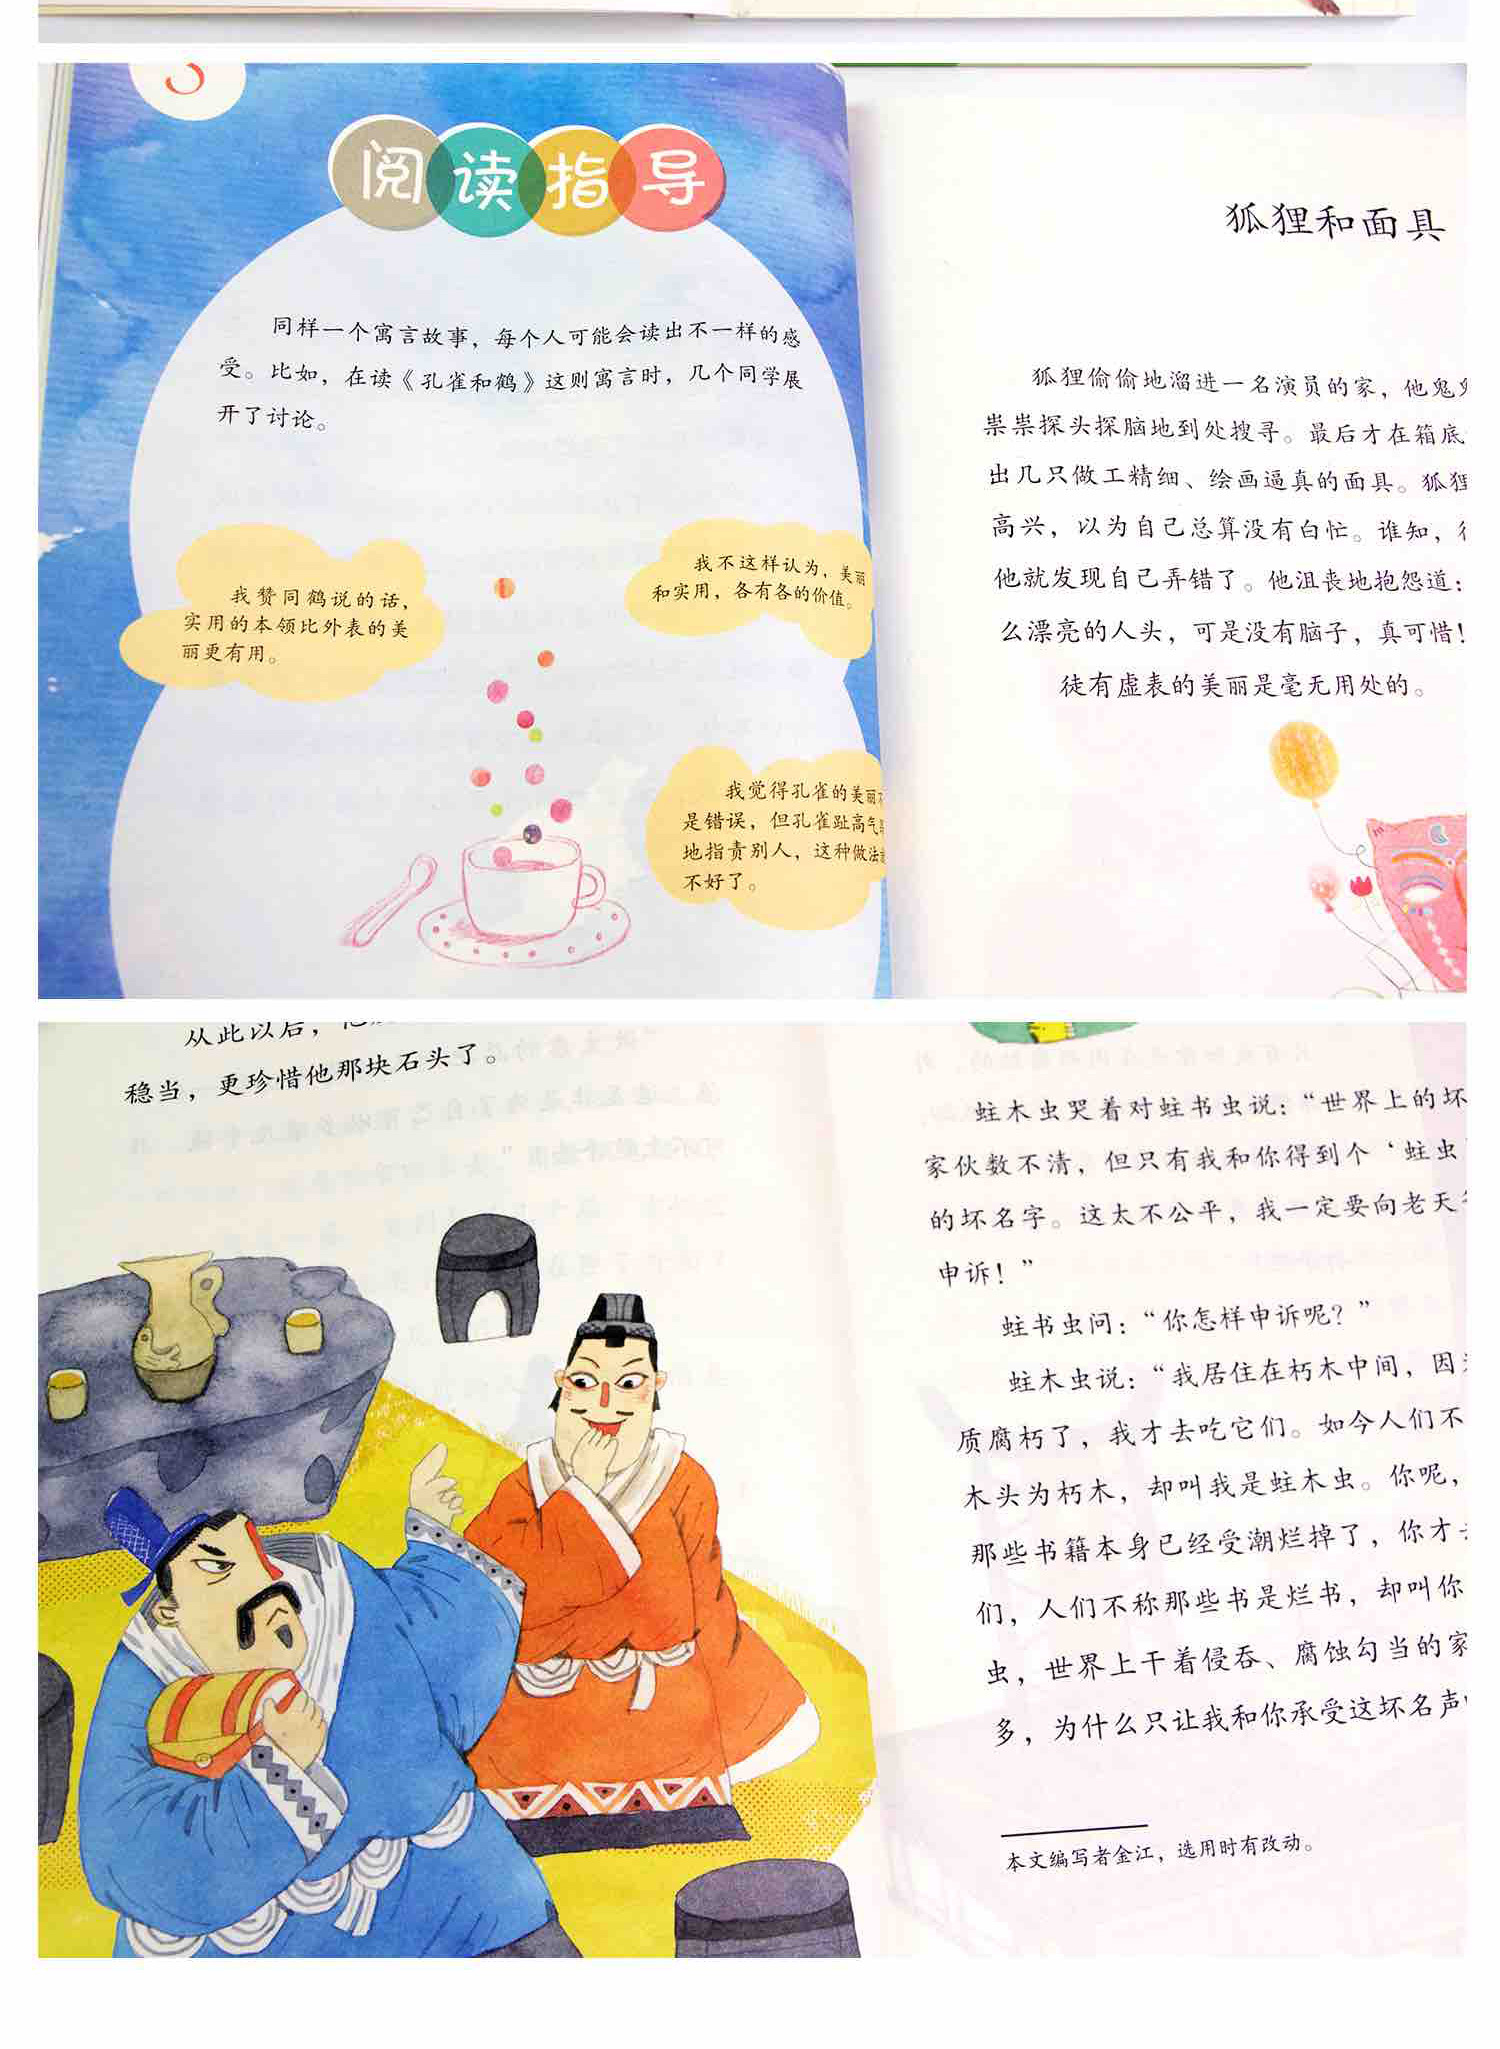 阅读指导
同样一个寓言故事，每个人可能会读出不一样的感
受。比如，在读《孔雀和鹤》这则寓言时，几个同学展
开了讨论。
我赞同鹤说的话，
实用的本领比外表的美
丽更有用。
我不这样认为，美丽
和实用，各有各的价值。
我觉得孔雀的美丽不
是错误，但孔雀趾高气
地指责别人，这种做法
不好了。
狐狸和面具
狐狸偷偷地溜进一名演员的家，他鬼
祟祟探头探脑地到处搜寻。最后才在箱底
出几只做工精细、绘画逼真的面具。狐狸
高兴，以为自己总算没有白忙。谁知，
他就发现自己弄错了。他沮丧地抱怨道：
么漂亮的人头，可是没有脑子，真可惜！
徒有虚表的美丽是毫无用处的。
从此以后，
稳当，更珍惜他那块石头了。
蛀木虫哭着对蛀书虫说：“世界上的坏
家伙数不清，但只有我和你得到个‘蛀虫
的坏名字。这太不公平，我一定要向老天
申诉！”
蛀书虫问：“你怎样申诉呢？”
蛀木虫说：“我居住在朽木中间，因
质腐朽了，我才去吃它们。如今人们不
木头为朽木，却叫我是蛀木虫。你呢，
那些书籍本身已经受潮烂掉了，你才
们，人们不称那些书是烂书，却叫你
虫，世界上干着侵吞、腐蚀勾当的家
多，为什么只让我和你承受这坏名声
本文编写者金江，选用时有改动。